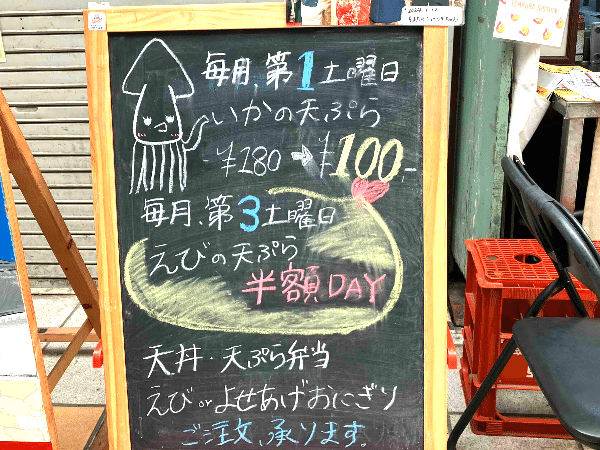 毎月、第1土曜日
いかの天ぷら
¥180→¥100,-
毎月、第3土曜日
えびの天ぷら
半額DAY
天丼・天ぷら弁当
えびorよせあげおにぎり
ご注文、承ります。